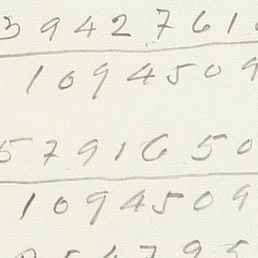 3 9 4 2 7 6 1
1 0 9 4 5 0 9
5 7 9 1 6 5 0
1 0 9 4 5 0 9